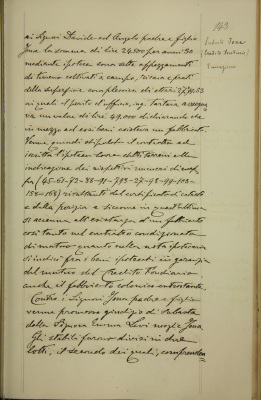 143
ai Signori Davide ed Angelo padre e figlio
Jona la somma di lire 24.500 per anni 30
mediante ipoteca sovra sette appezzamenti
di terreno coltivati a campo, risaia e prati
della superficie complessiva di ettari
ai quali il perito d'ufficio, ing. Tartara assegna
va un valore di lire 49.000 dichiarando che
in mezzo ad essi beni esisteva un fabbricato.
Venne quindi stipulato il contratto ed
iscritta l'ipoteca sovra detti terreni colla
indicazione dei rispettivi numeri di map
pa (45-61-72-
158-168) risultanti dal certificato di catasto
e dalla perizia e siccome in quest'ultima
si accenna all'esistenza d'un fabbricato
così tanto nel contratto condizionato
di mutuo quanto nella nota ipotecaria
s'indicò fra i beni ipotecati in garanzia
del mutuo del Credito Fondiario
anche il fabbricato colonico entrostante.
Contro i Signori Jona padre e figlio
venne promosso giudizio di subasta
dalla Signora Emma Levi moglie Jona.
Gli stabili furono divisi in due
lotti, il secondo dei quali, compren